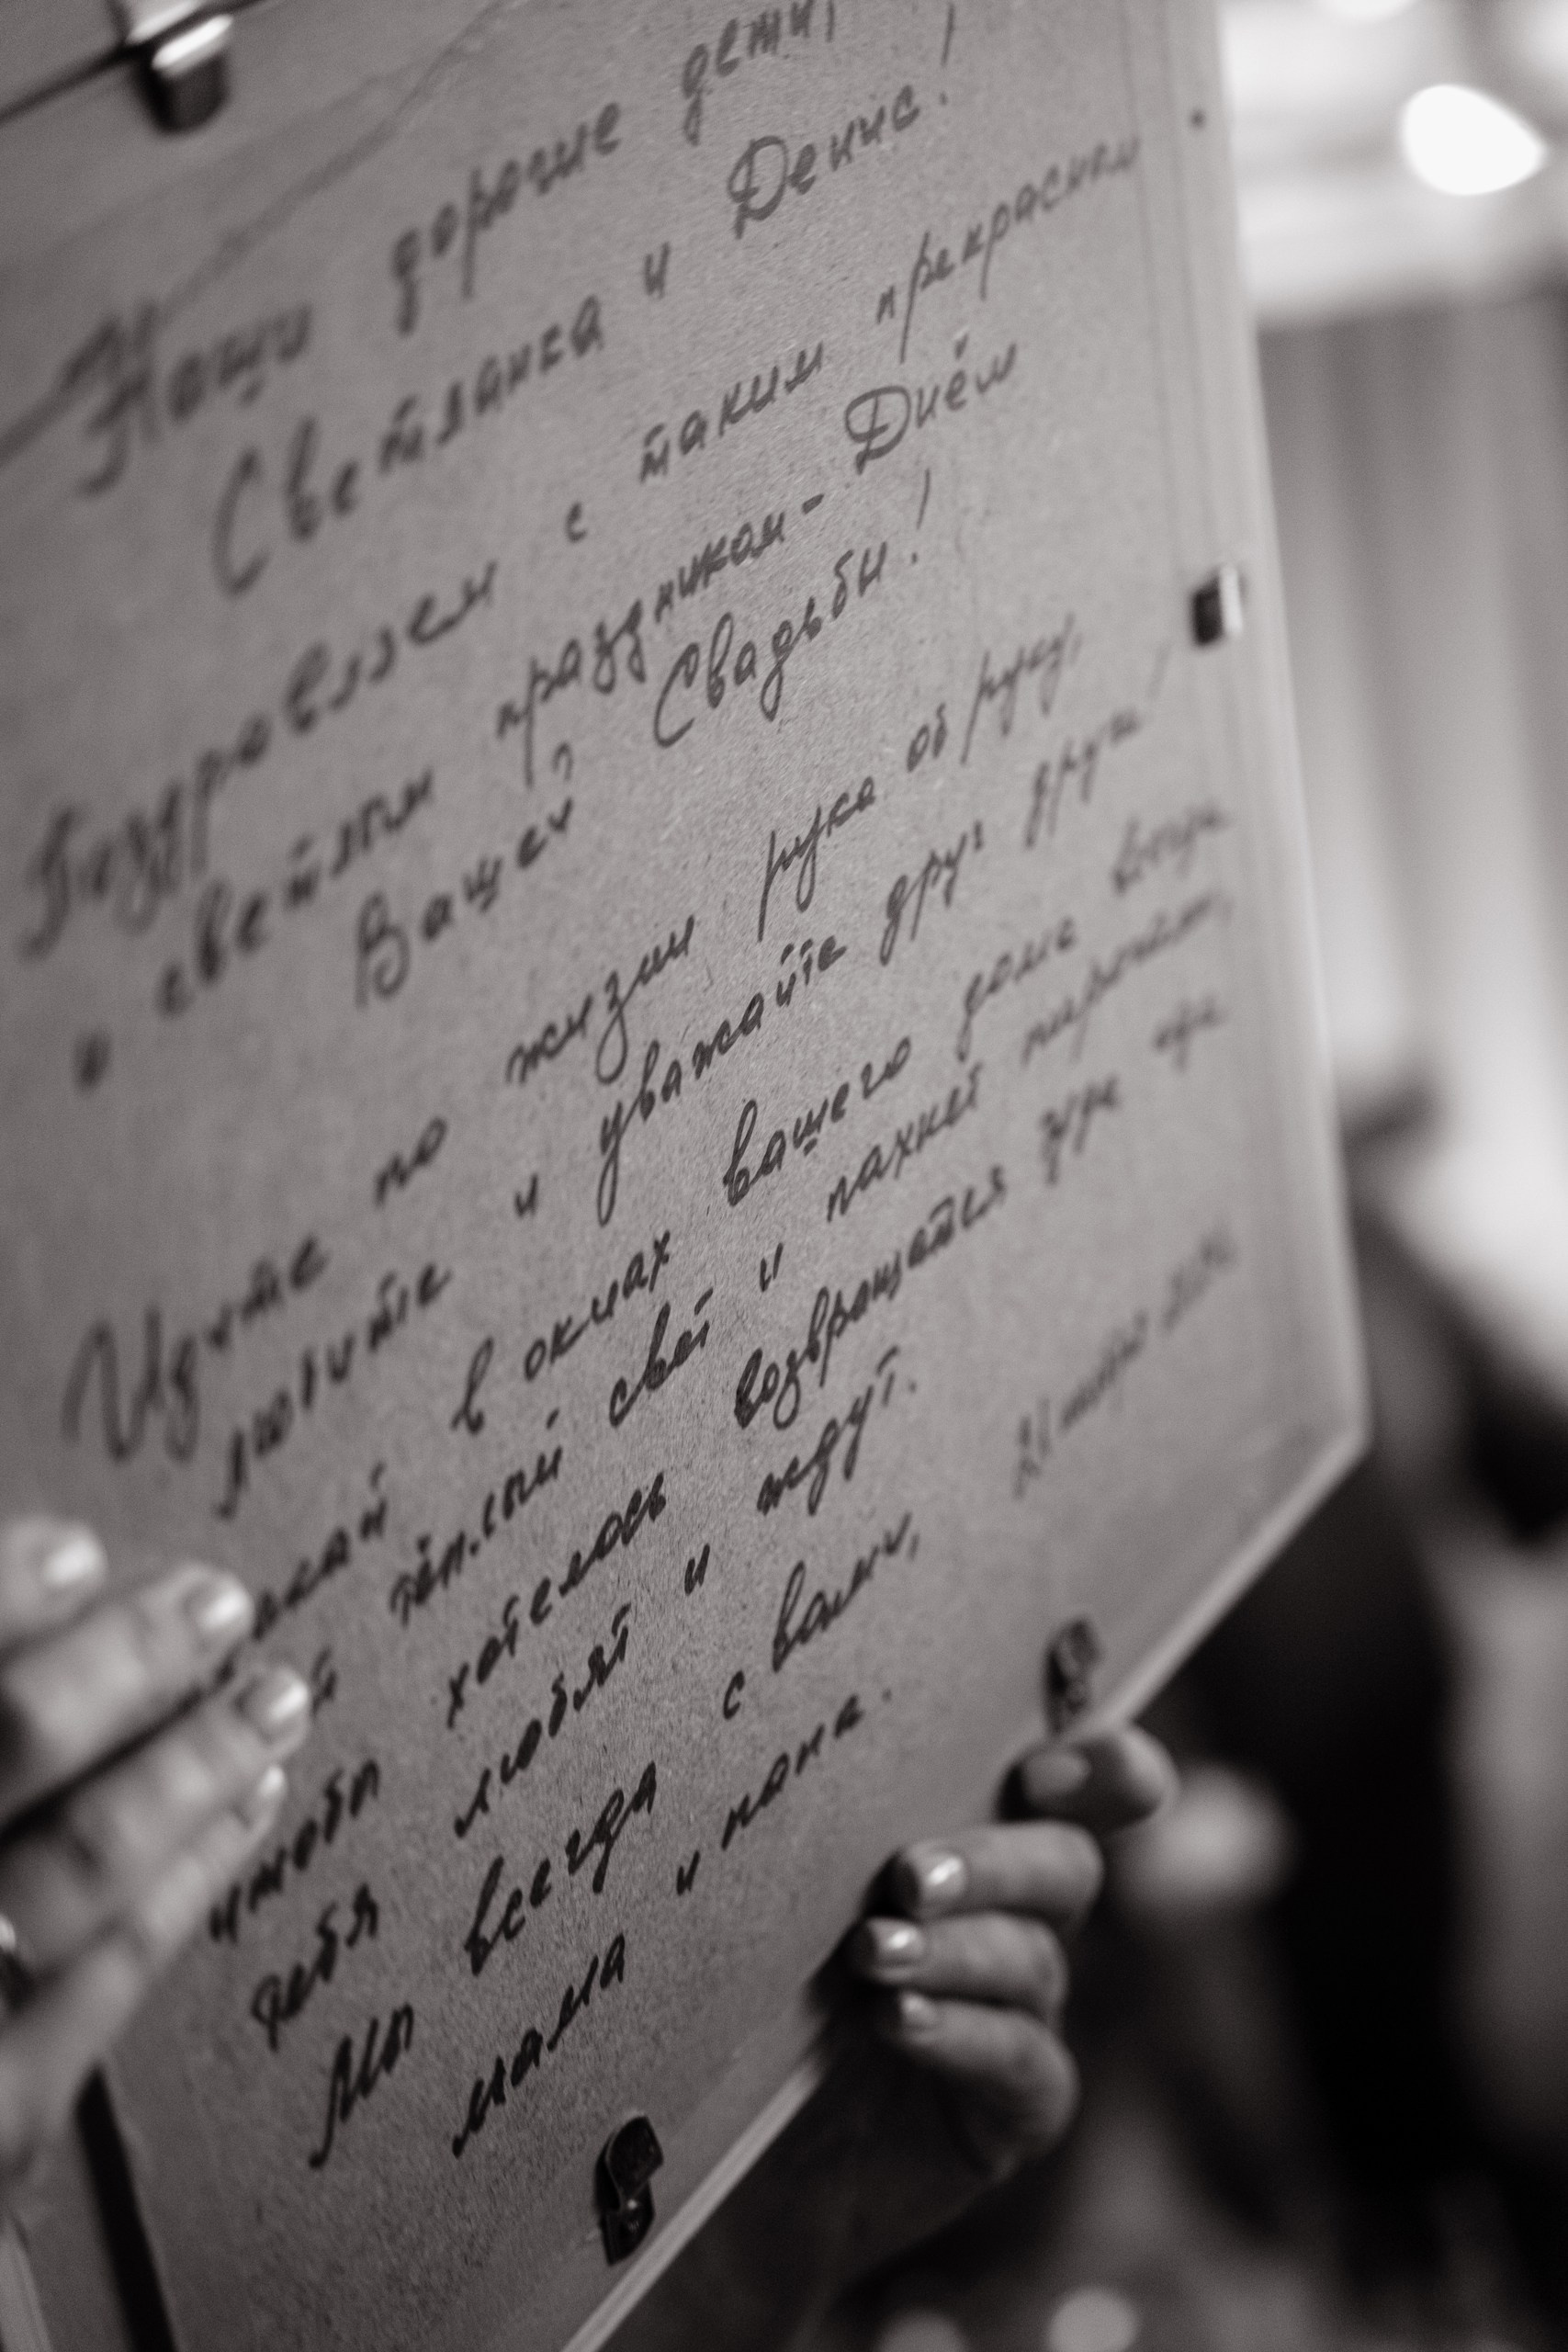 Наши дорогие дети,
Светланка и Денис!
Поздравляем с таким прекрасным
и светлым праздником - Днём
Вашей Свадьбы!
Идите по жизни рука об руку,
любите и уважайте друг друга!
Пускай в окнах вашего дома всегда
тёплый свет и пахнет пирогами,
чтобы хотелось возвращаться туда, где
тебя любят и ждут.
Мы всегда с вами,
мама и папа.